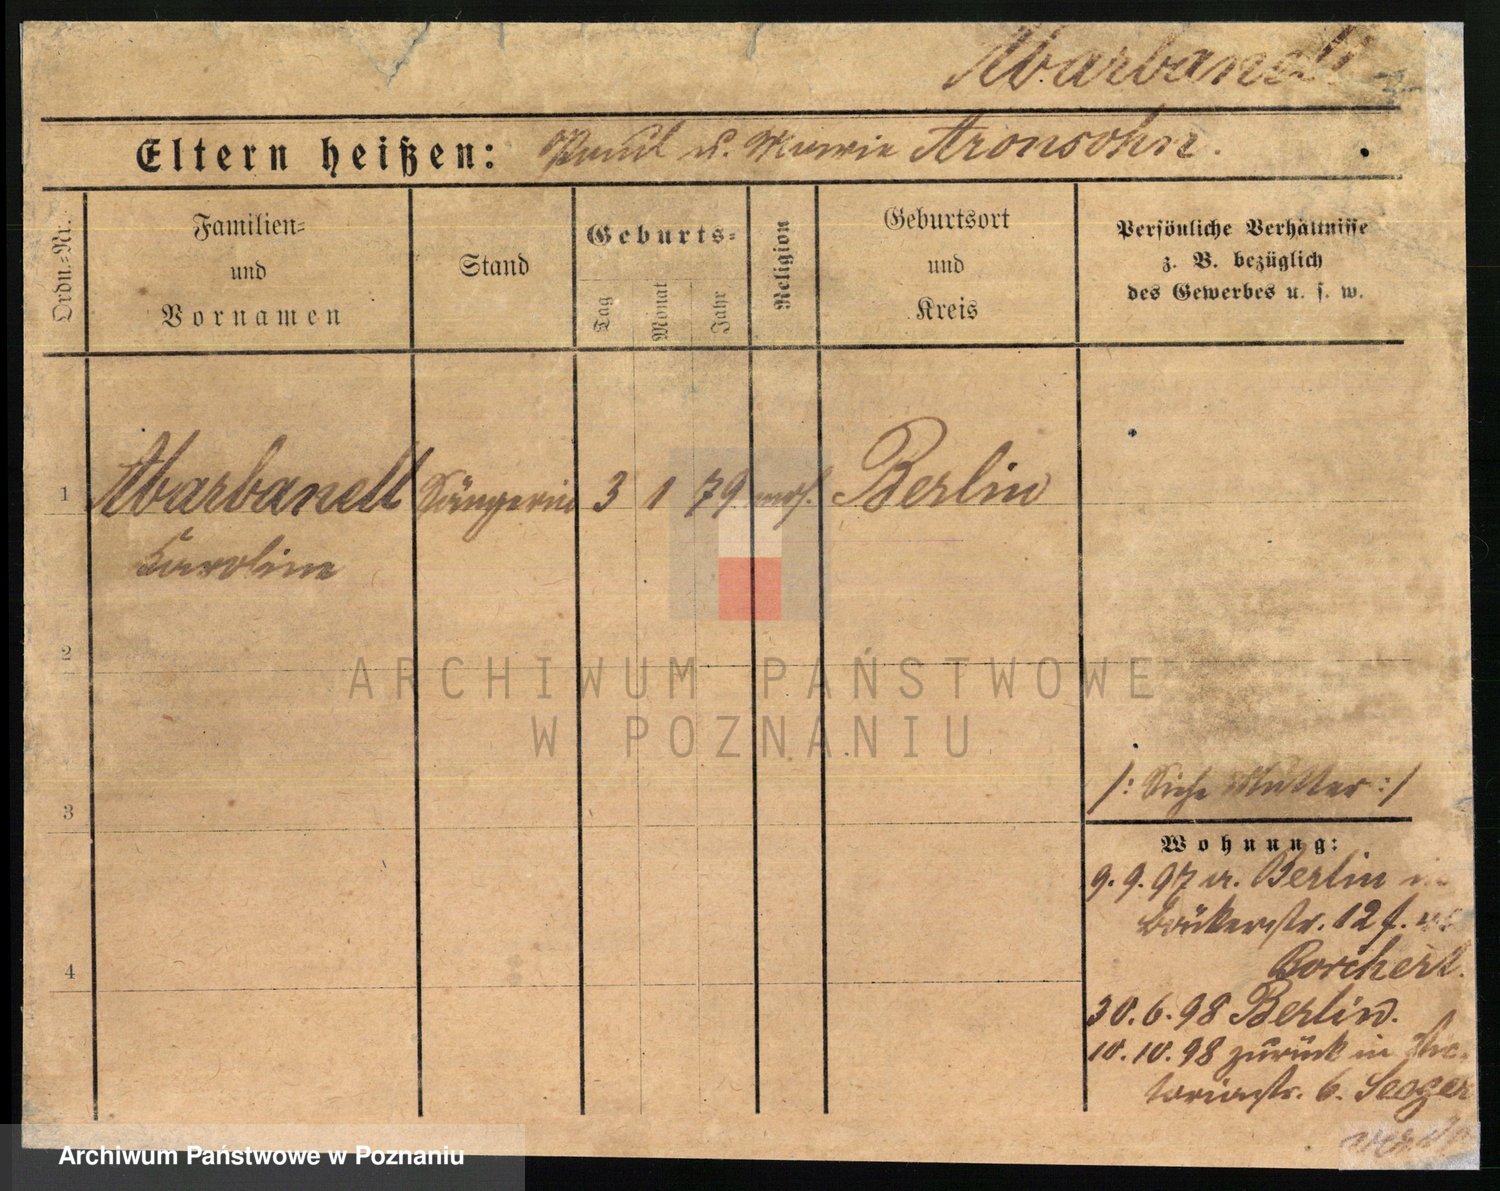 Abarbanell
Eltern heißen: Paul u. Marie Aronsohn.
Ordn.=Nr.
Familien=
und
Vornamen
Stand
Geburts=
Tag
Monat
Jahr
Religion
Geburtsort
und
Kreis
Persönliche Verhältnisse
z. B. bezüglich
des Gewerbes u. s. w.
1 Abarbanell Sängerin 3 1 79 mos. Berlin
Karoline
2
3
4
/: Siehe Mutter :/
Wohnung:
9. 9. 97 v. Berlin in
Bäckerstr. 12 f.
Borchert.
30. 6. 98 Berlin.
10. 10. 98 zurück in Vic-
toriastr. 6. Seeger
ARCHIWUM PAŃSTWOWE
W POZNANIU
Archiwum Państwowe w Poznaniu